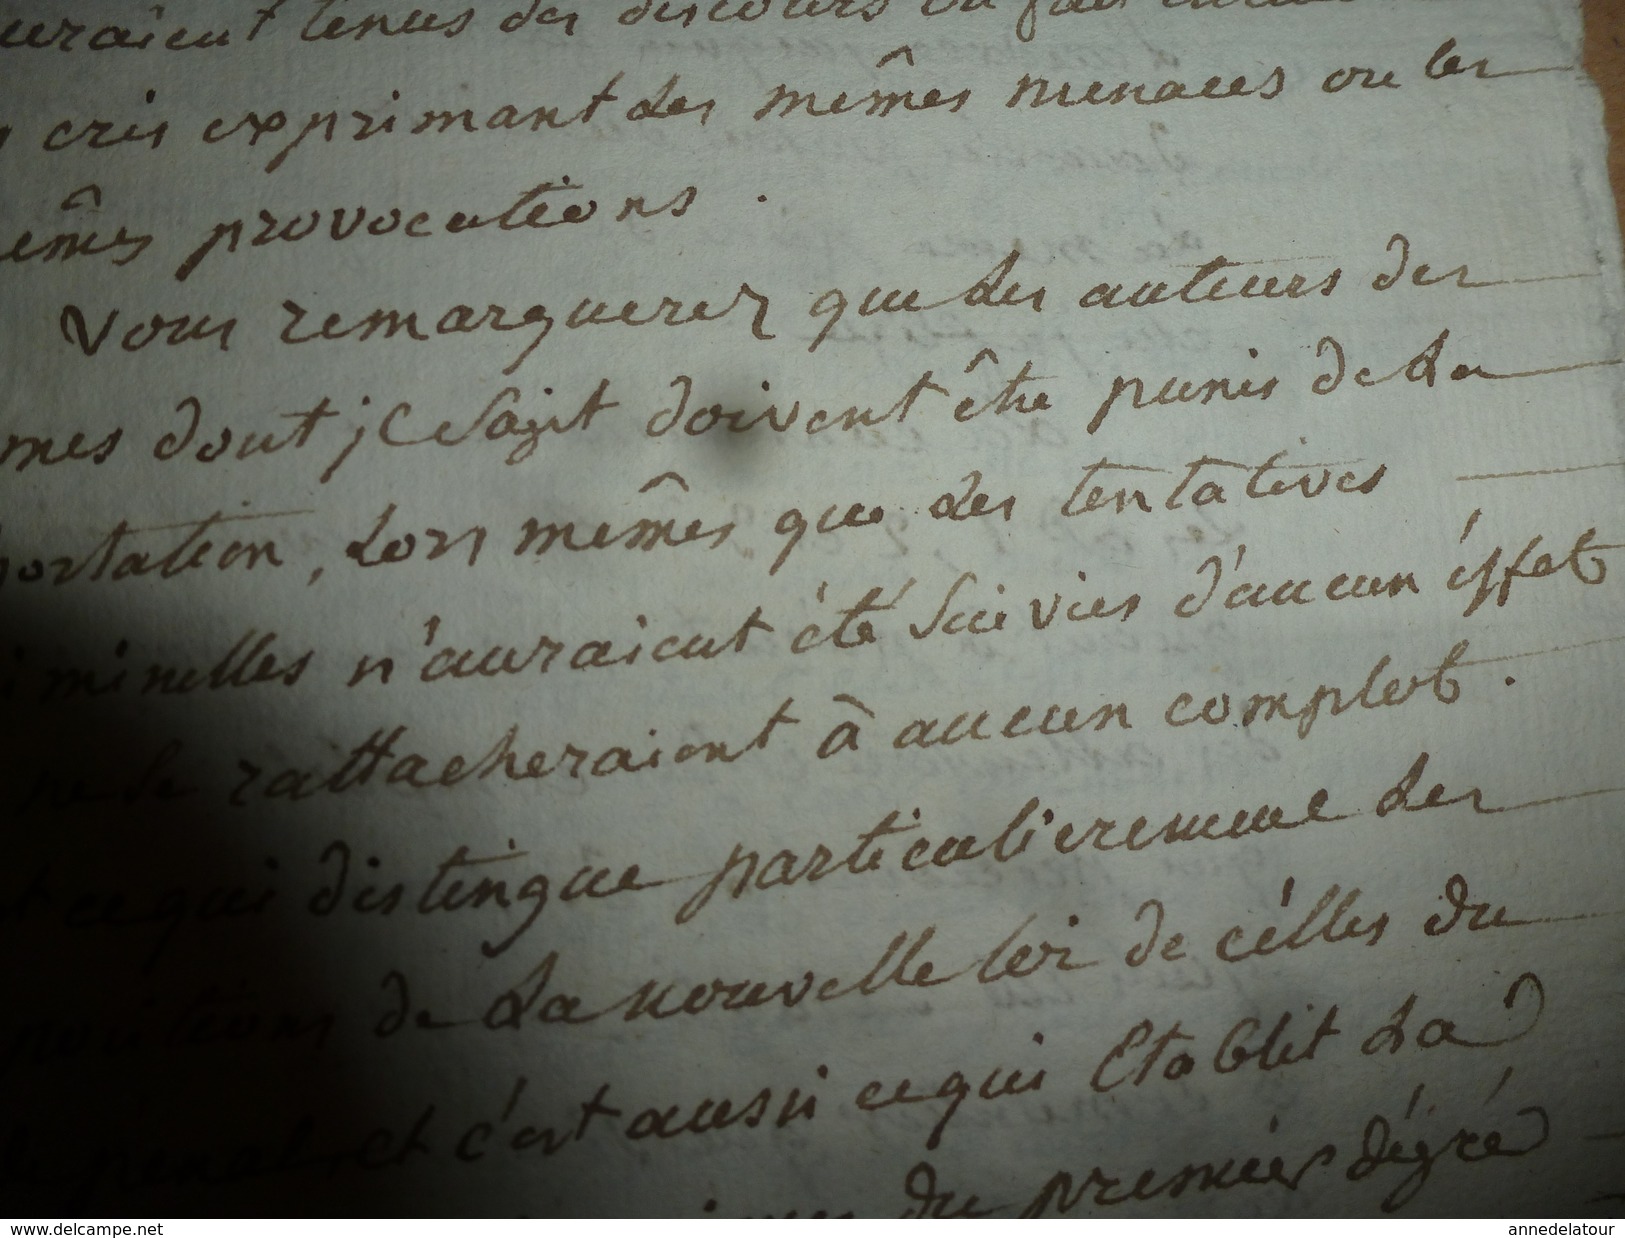 tenus des discours ou fait
cris exprimant les mêmes menaces ou les
êmes provocations.
Vous remarquerez que les auteurs des
mes dont il s'agit doivent être punis de la
ortation, lors mêmes que les tentatives
minelles n'auraient été suivies d'aucun éffet
ne se rattacheraient à aucun complot.
ce qui distingue particulieremme les
positions de la nouvelle loi de célles du
penal, et c'est aussi ce qui Etablit la
du premier dégré
www.delcampe.net
annedelatour